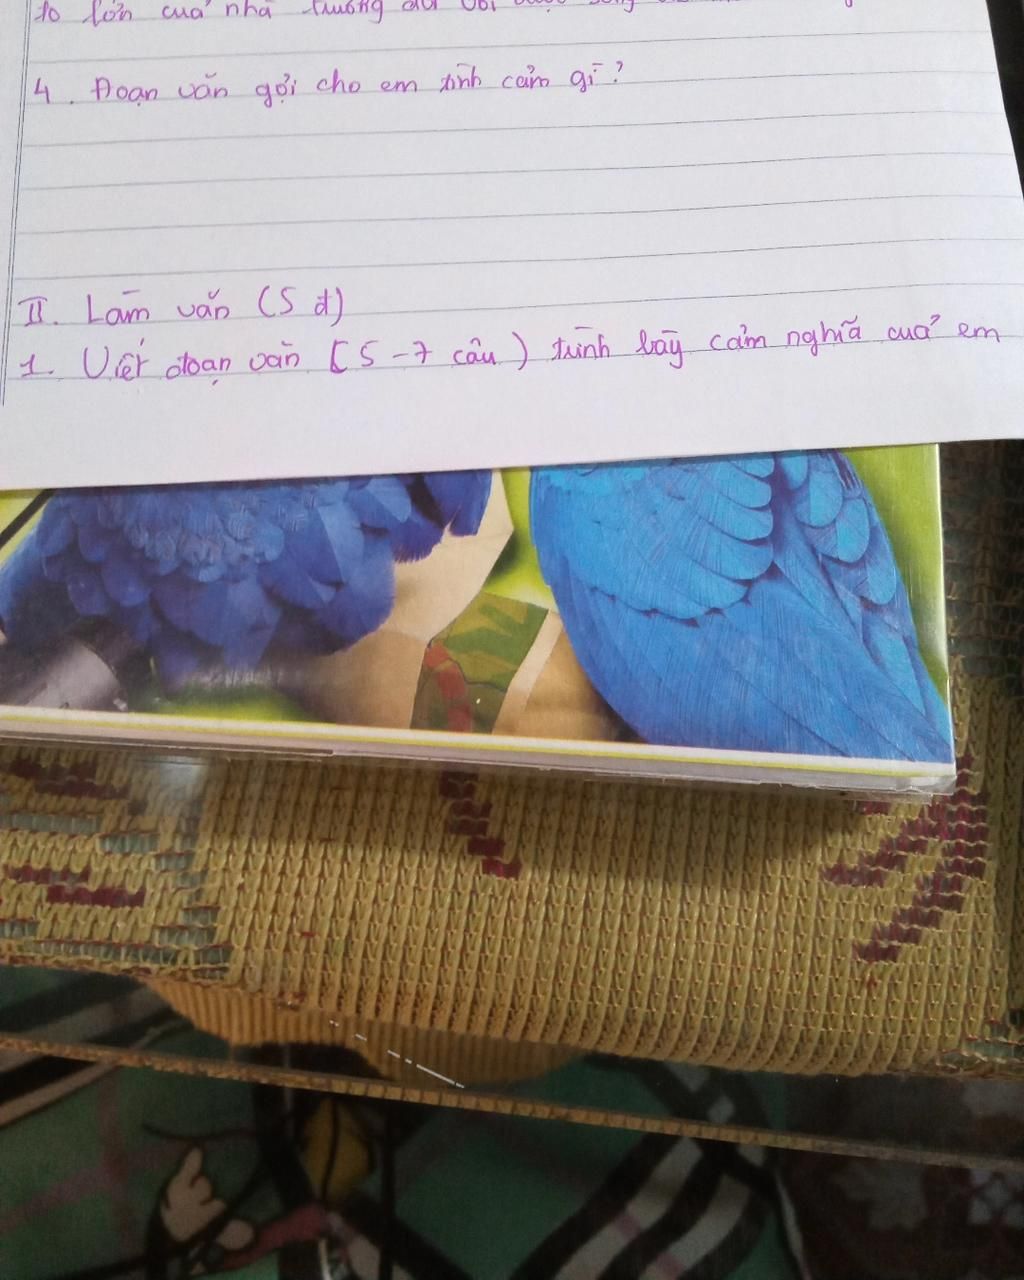 to lớn của nhà trường đối với
4. Đoạn văn gợi cho em tình cảm gì?
II. Làm văn (5 đ)
1. Viết đoạn văn (5-7 câu) trình bày cảm nghĩ của em